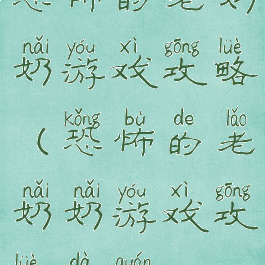 恐怖的老奶
nǎi yóu xì gōng lüè
奶游戏攻略
kǒng bù de lǎo
（恐怖的老
nǎi nǎi yóu xì gōng
奶奶游戏攻
lüè dà quán